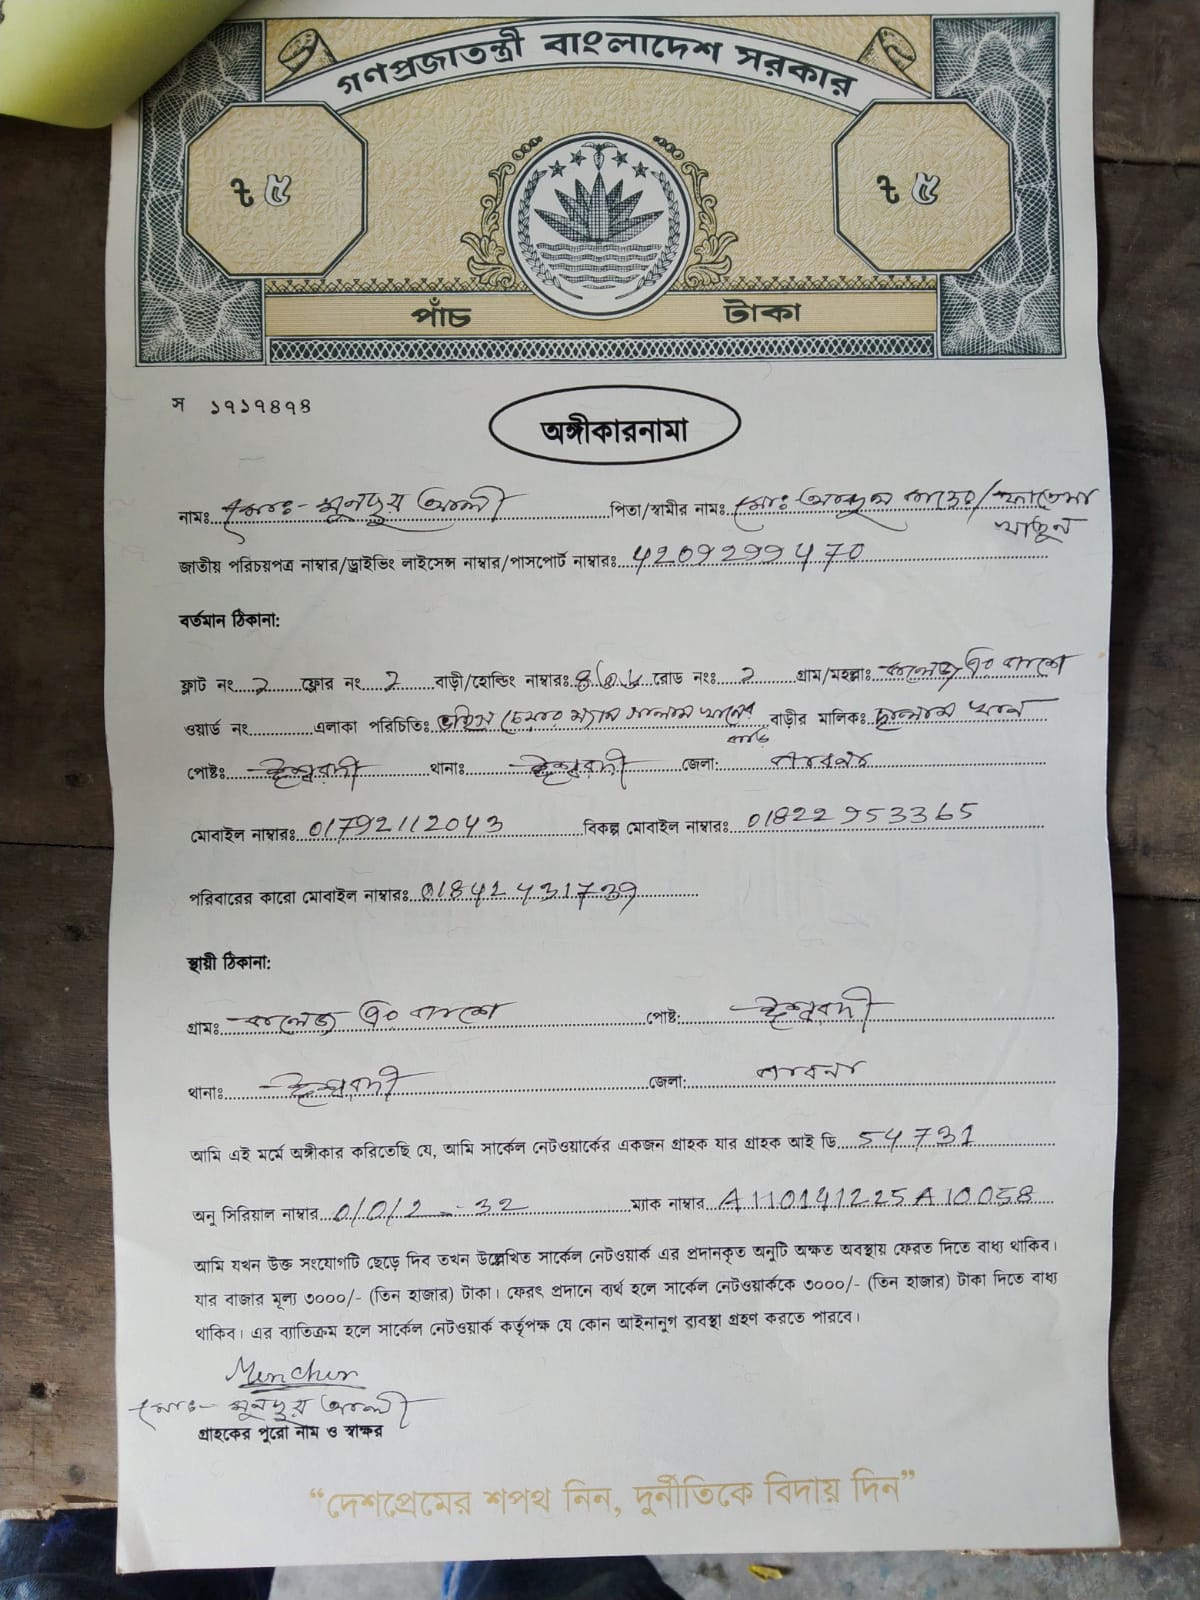 গণপ্রজাতন্ত্রী বাংলাদেশ সরকার
৳ ৫ ৳ ৫
পাঁচ টাকা
স ১৭১৭৪৭৪
অঙ্গীকারনামা
নামঃ মোঃ- মুনছুর আলী পিতা/স্বামীর নামঃ মোঃ আব্দুল /ফাতেমা
খাতুন
জাতীয় পরিচয়পত্র নাম্বার/ড্রাইভিং লাইসেন্স নাম্বার/পাসপোর্ট নাম্বারঃ 4209299470
বর্তমান ঠিকানা:
ফ্লাট নং 2 ফ্লোর নং 2 বাড়ী/হোল্ডিং নাম্বারঃ রোড নংঃ 2 গ্রাম/মহল্লাঃ কলেজ
ওয়ার্ড নং এলাকা পরিচিতিঃ সালাম খানের বাড়ীর মালিকঃ ছালাম খান
বাড়ি
পোষ্টঃ ঈশ্বরদী থানাঃ ঈশ্বরদী জেলা: পাবনা
মোবাইল নাম্বারঃ 01792112043 বিকল্প মোবাইল নাম্বারঃ 01822953365
পরিবারের কারো মোবাইল নাম্বারঃ 01842431739
স্থায়ী ঠিকানা:
গ্রামঃ কলেজ পোষ্ট: ঈশ্বরদী
থানাঃ ঈশ্বরদী জেলা: পাবনা
আমি এই মর্মে অঙ্গীকার করিতেছি যে, আমি সার্কেল নেটওয়ার্কের একজন গ্রাহক যার গ্রাহক আই ডি 54731
অনু সিরিয়াল নাম্বার 0/0/2 - 32 ম্যাক নাম্বার A110141225A10058
আমি যখন উক্ত সংযোগটি ছেড়ে দিব তখন উল্লেখিত সার্কেল নেটওয়ার্ক এর প্রদানকৃত অনুটি অক্ষত অবস্থায় ফেরত দিতে বাধ্য থাকিব।
যার বাজার মূল্য ৩০০০/- (তিন হাজার) টাকা। ফেরৎ প্রদানে ব্যর্থ হলে সার্কেল নেটওয়ার্ককে ৩০০০/- (তিন হাজার) টাকা দিতে বাধ্য
থাকিব। এর ব্যাতিক্রম হলে সার্কেল নেটওয়ার্ক কর্তৃপক্ষ যে কোন আইনানুগ ব্যবস্থা গ্রহণ করতে পারবে।
মোঃ- মুনছুর আলী
গ্রাহকের পুরো নাম ও স্বাক্ষর
“দেশপ্রেমের শপথ নিন, দুর্নীতিকে বিদায় দিন”